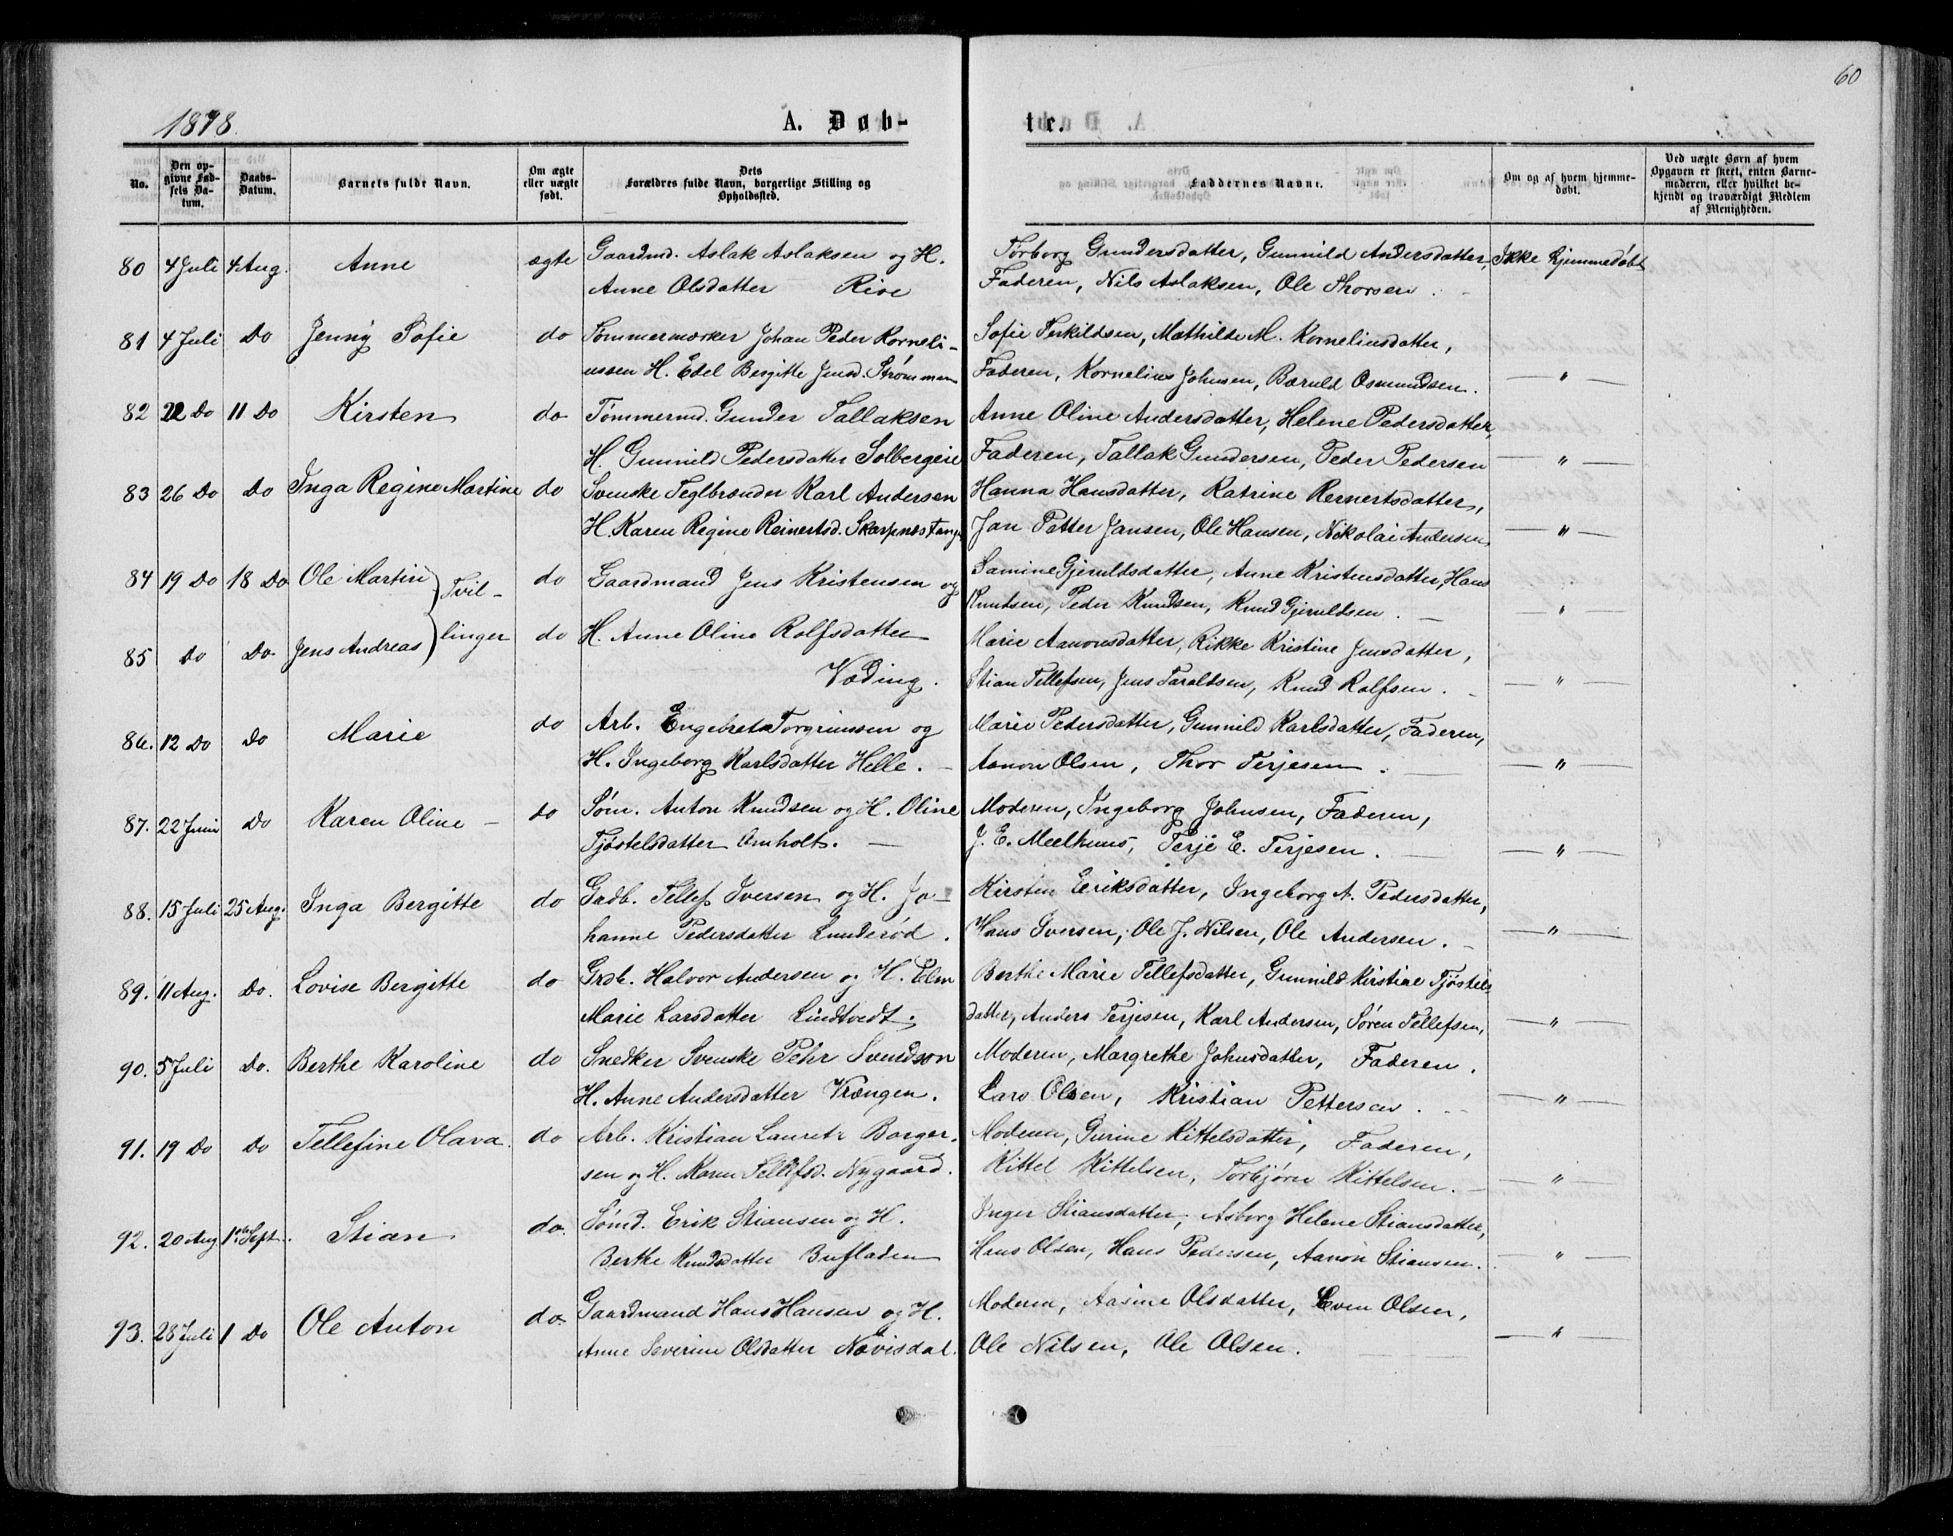 60
1878.
A. Døb-
te.
No.
Den opgivne Fødsels Datum.
Daabs-Datum.
Barnets fulde Navn.
Om ægte eller uægte født.
Dets Forældres fulde Navn, borgerlige Stilling og Opholdssted.
Faddernes Navne.
Om og af hvem hjemmedøbt.
Ved uægte Børn af hvem Opgaven er skeet, enten Barnemoderen, eller hvilket bekjendt og troværdigt Medlem af Menigheden.
80 4 Juli 4 Aug. Anne ægte Gaardmd. Aslak Aslaksen og H. Torborg Gundersdatter, Gunnild Andersdatter, Ikke hjemmedøbt
Anne Olsdatter Rise Faderen, Nils Aslaksen, Ole Thorsen.
81 4 Juli Do Jenny Sofie do Tømmermærker Johan Peder Korneli- Sofie Terkildsen, Mathilde M. Korneliusdatter,
ussen H. Edel Bergitte Jensd. Strømmen Faderen, Kornelius Johnsen, Bæruld Osmundsen. — " —
82 22 Do 11 Do Kirsten do Tømmermd. Gunder Tallaksen Anne Oline Andersdatter, Helene Pedersdatter,
H. Gunnild Pedersdatter Solbergeie Faderen, Tallak Gundersen, Peder Pedersen — " —
83 26 Do Do Inga Regine Martine do Svenske Teglbrænder Karl Andersen Hanna Hansdatter, Katrine Rernertsdatter,
H. Karen Regine Reinertsd. Skarpnestang. Jan Petter Jansen, Ole Hansen, Nikolai Andersen — " —
84 19 Do 18 Do Ole Martin } Tvil- do Gaardmand Jens Kristensen og Samine Gjeruldsdatter, Anne Kristensdatter, Hans
Knudsen, Peder Knudsen, Knud Gjeruldsen. — " —
85 Do Do Jens Andreas } linger do H. Anne Oline Rolfsdatter Marie Aanonsdatter, Rikke Kristine Jensdatter,
Væding. Stian Tellefsen, Jens Taraldsen, Knud Rolfsen. — " —
86. 12 Do Do Marie do Arb. Engebret Torgrimsen og Marie Pedersdatter, Gunnild Karlsdatter, Faderen,
H. Ingeborg Karlsdatter Helle. Aanon Olsen, Thor Terjesen. — " —
87. 22 Juni Do Karen Oline do Søm. Anton Knudsen og H. Oline Moderen, Ingeborg Johnsen, Faderen,
Tjøstelsdatter Omholt. J. E. Meelhuus, Terje E. Terjesen. — " —
88. 15 Juli 25 Aug. Inga Bergitte do Grdb. Tellef Iversen og H. Jo- Kirsten Eriksdatter, Ingeborg A. Pedersdatter,
hanne Pedersdatter Lunderød. Hans Iversen, Ole J. Nilsen, Ole Andersen. — " —
89. 11 Aug. Do. Lovise Bergitte do Grdb. Halvor Andersen og H. Elen Berthe Marie Tellefsdatter, Gunnild Kirstine Tjøstels
Marie Larsdatter Lindtvedt. datter, Anders Terjesen, Karl Andersen, Søren Tellefsen, — " —
90. 5 Juli Do. Berthe Karoline do Snedker Svenske Pehr Svendson Moderen, Margrethe Johnsdatter, Faderen.
H. Anne Andersdatter Vrængen. Lars Olsen, Kristian Pettersen. — " —
91. 19 Do Do Tellefine Olava. do Arb. Kristian Lauretz Borger- Moderen, Gurine Kittelsdatter, Faderen,
sen og H. Karen Tellefsd. Nygaard. Kittel Kittelsen, Torbjørn Kittelsen. — " —
92. 20 Aug 1ste Sept. Stian do. Sømd. Erik Stiansen og H. Inger Stiansdatter, Asborg Helene Stiansdatter,
Berthe Knudsdatter Bufladen Hans Olsen, Hans Pedersen, Aanon Stiansen. — " —
93. 28 Juli 1 Do Ole Anton do. Gaardmand Hans Hansen og H. Moderen, Aasine Olsdatter, Even Olsen,
Anne Severine Olsdatter Nævisdal. Ole Nilsen, Ole Olsen. — " —